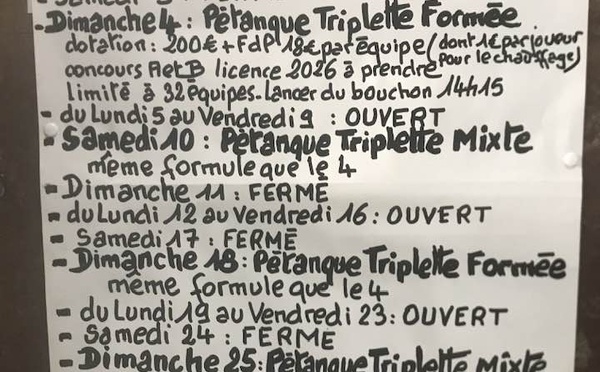 -Dimanche 4 : Pétanque Triplette Formée
dotation : 200€ + FdP 18€ par équipe (dont 1€ par joueur pour le chauffage)
concours A et B licence 2026 à prendre
limité à 32 équipes - Lancer du bouchon 14h15
- du Lundi 5 au Vendredi 9 : OUVERT
- Samedi 10 : Pétanque Triplette Mixte
même formule que le 4
- Dimanche 11 : FERMÉ
- du Lundi 12 au Vendredi 16 : OUVERT
- Samedi 17 : FERMÉ
- Dimanche 18 : Pétanque Triplette Formée
même formule que le 4
- du Lundi 19 au Vendredi 23 : OUVERT
- Samedi 24 : FERMÉ
- Dimanche 25 : Pétanque Triplette Mixte